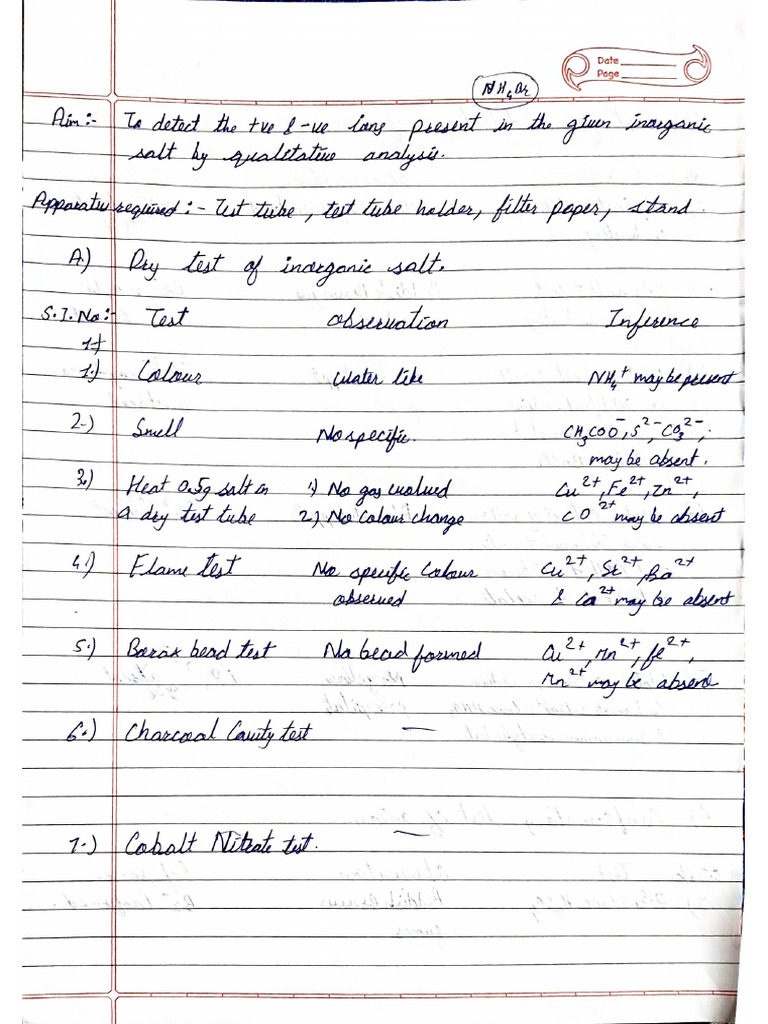 Date
Page
NH4Br
Aim:- To detect the +ve & -ve ions present in the given inorganic
salt by qualitative analysis.
Apparatus required:- Test tube, test tube holder, filter paper, stand.
A.) Dry test of inorganic salt.
S.I.No:- Test Observation Inference
1.) Colour Water like NH4+ may be present
2.) Smell No specific. CH3COO-, S2-, CO3 2-,
may be absent.
3.) Heat 0.5g salt in 1) No gas evolved Cu2+, Fe2+, Zn2+,
a dry test tube 2) No Colour change CO2+ may be absent
4.) Flame test No specific Colour Cu2+, Sr2+, Ba2+
observed & Ca2+ may be absent
5.) Borax bead test No bead formed Cu2+, Mn2+, Fe2+,
Mn2+ may be absend
6.) Charcoal Cavity test —
7.) Cobalt Nitrate test. —